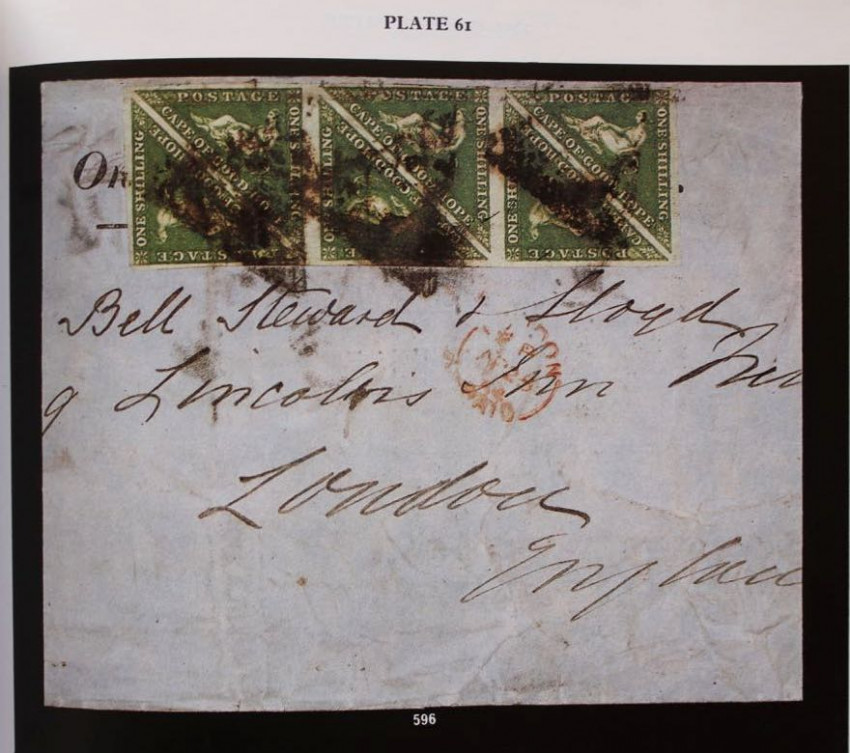 PLATE 61
POSTAGE POSTAGE POSTAGE
ONE SHILLING CAPE OF GOOD HOPE ONE SHILLING
ONE SHILLING CAPE OF GOOD HOPE ONE SHILLING
ONE SHILLING CAPE OF GOOD HOPE ONE SHILLING
POSTAGE POSTAGE POSTAGE
On
Bell Steward & Lloyd
9 Lincolns Inn
PAID
London
England
596